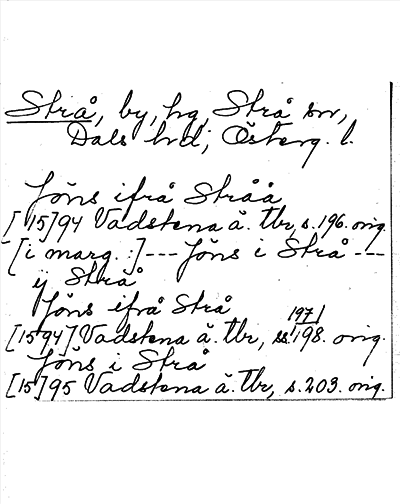 Strå, by, hg, Strå sn,
Dals hd, Österg. l.
Jöns ifrå Stråå
[15]94 Vadstena ä. Tbr, s. 196. orig.
[i marg.:] --- Jöns i Strå ---
ij Strå
Jöns ifrå Strå
197/
[1594] Vadstena ä. Tbr, ss. 198. orig.
Jöns i Strå
[15]95 Vadstena ä. Tbr, s. 203. orig.